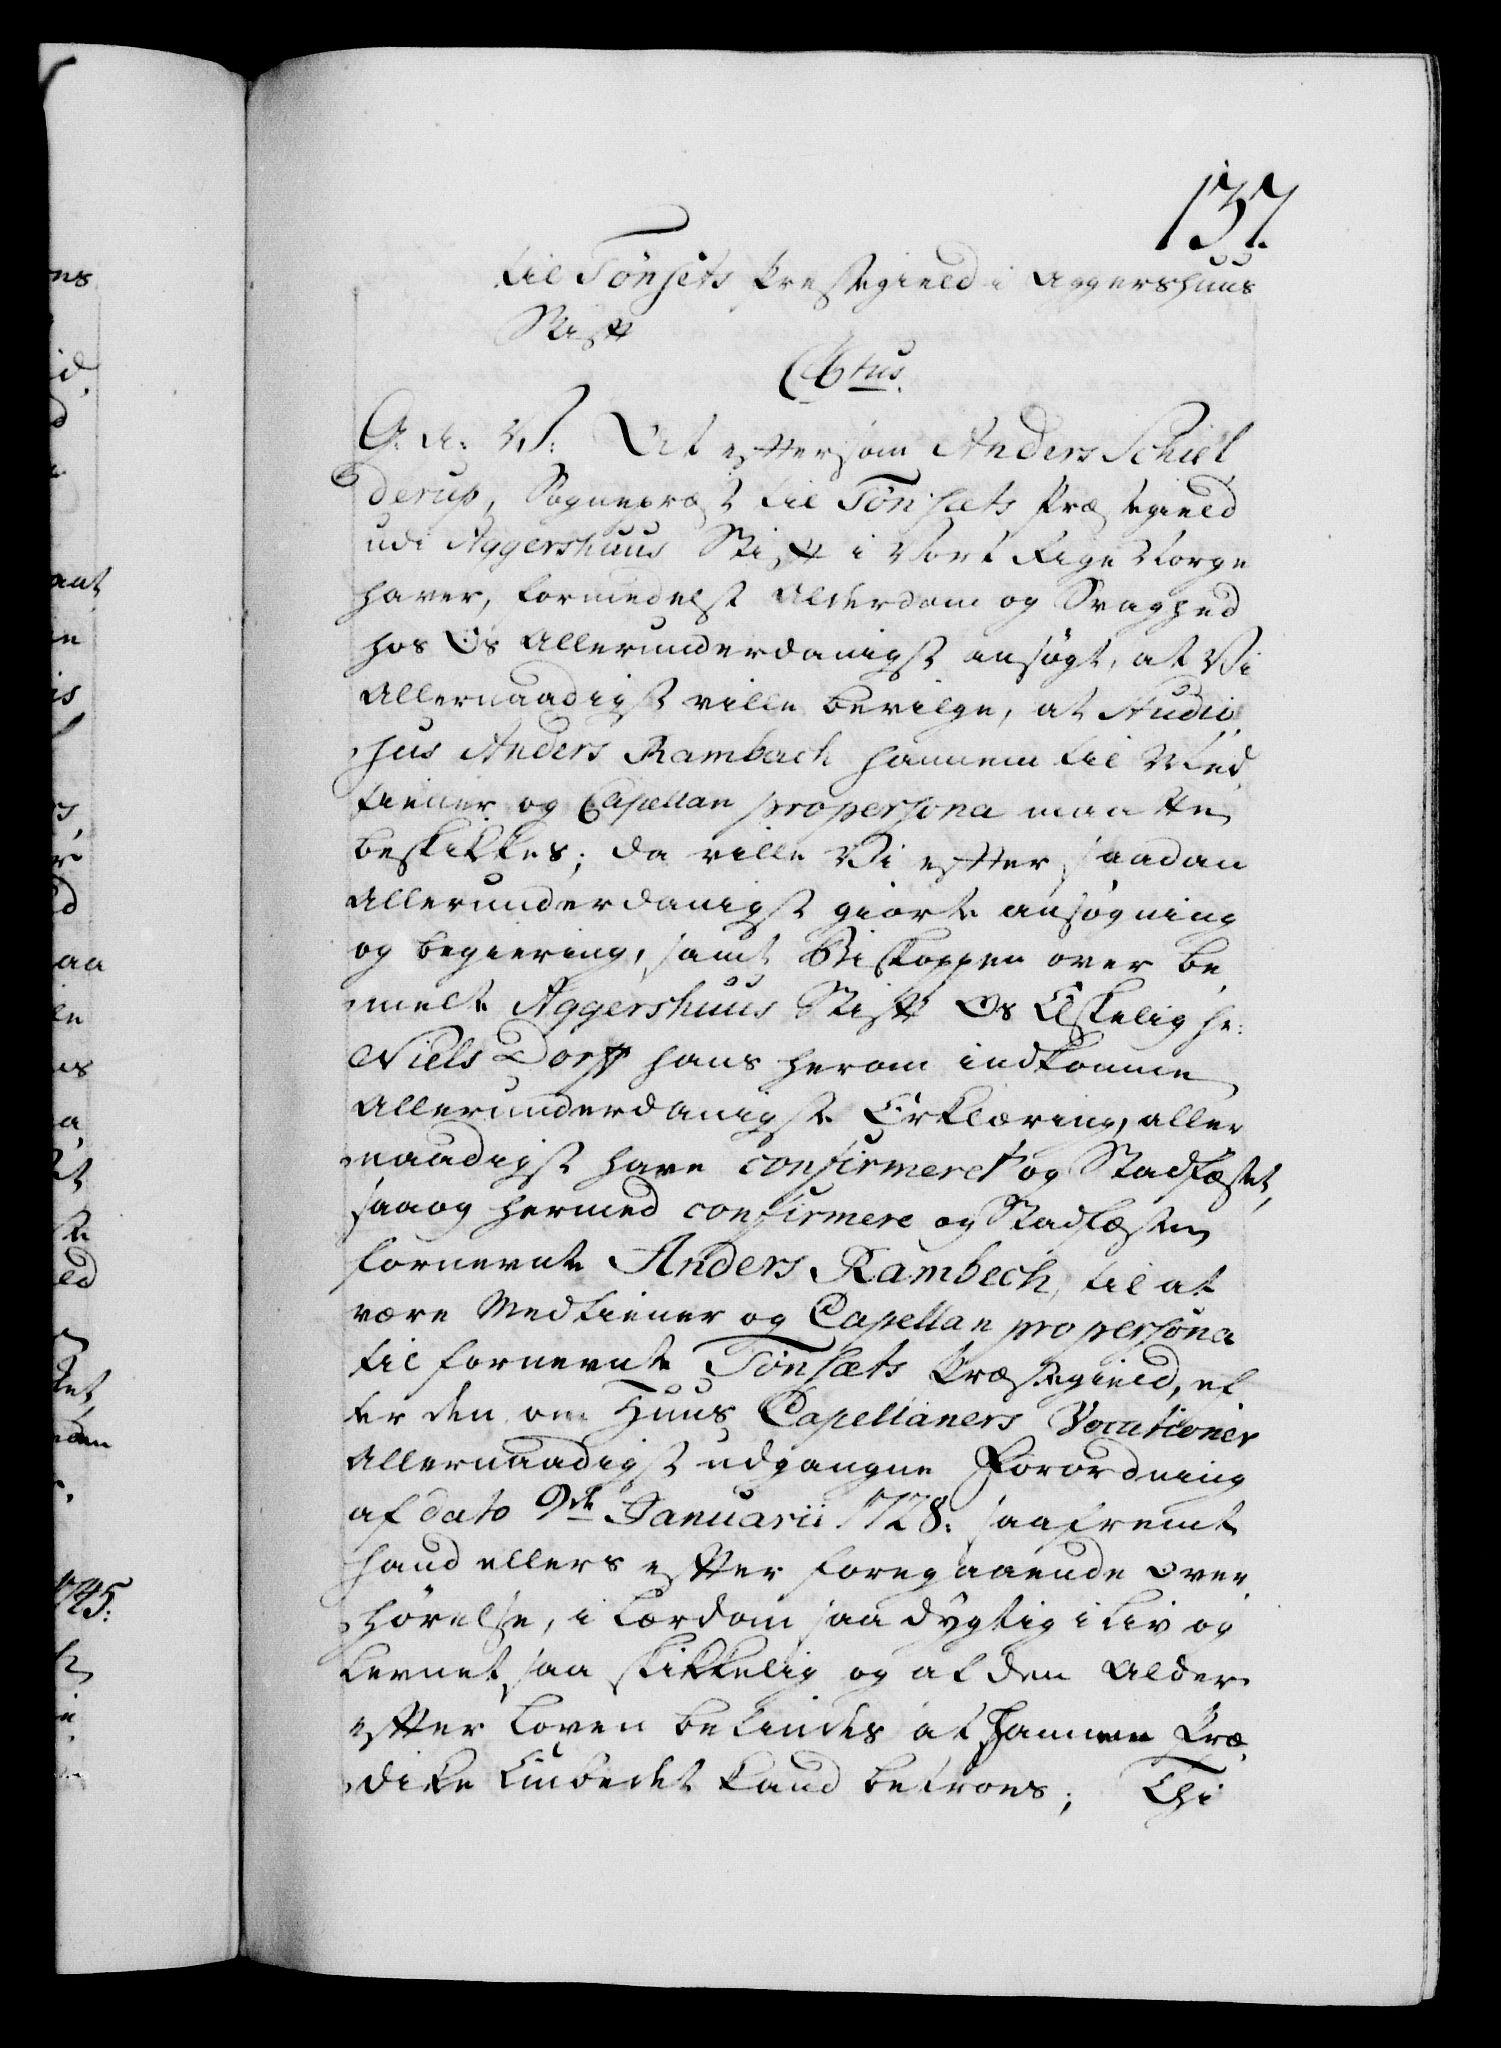 137.
til Tönsets Prestegield i Aggershuus
Stift
C 6tus.
G. A: V: At eftersom Anders Schiel
derup, Sogneprest til Tönsæts Præstegield
udi Aggershuus Stift i Vort Rige Norge
haver, formedelst Alderdom og Svaghed
hos Os Allerunderdanigst ansøgt, at Vi
Allernaadigst ville bevilge, at Studio
sus Anders Rambach hannem til Med
tiener og Capellan pro persona maatte
beskikkes; da ville Vi efter saadan
Allerunderdanigst giorte ansøgning
og begiering, samt Biskoppen over be
melte Aggershuus Stift Os Elskelig Hr:
Niels Dorff hans herom indkomne
Allerunderdanigste Erklæring, aller
naadigst have confirmeret og Stadfæstet,
saa og hermed confirmere og Stadfæste
fornevnte Anders Rambech, til at
være Medtiener og Capellan pro persona
til fornevnte Tönsæts Præstegield, ef
ter den om Huus Capellaners Vocationer
Allernaadigst udgangne Forordning
af dato 9de Januarii 1728: saafremt
hand ellers efter foregaaende over
hørelse, i Lærdom saa dygtig i Liv og
Levnet saa skikkelig og af den Alder
efter Loven befindes at hannem Præ
dike Embedet kand betroes; Thi